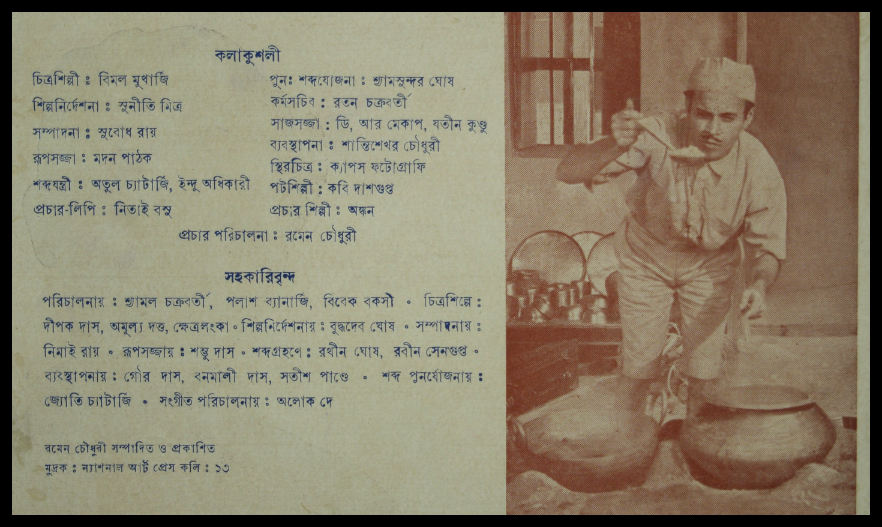 কলাকুশলী
চিত্রশিল্পী : বিমল মুখার্জি
শিল্পনির্দেশনা : সুনীতি মিত্র
সম্পাদনা : সুবোধ রায়
রূপসজ্জা : মদন পাঠক
শব্দযন্ত্রী : অতুল চ্যাটার্জি, ইন্দু অধিকারী
প্রচার-লিপি : নিতাই বসু
পুনঃ শব্দযোজনা : শ্যামসুন্দর ঘোষ
কর্মসচিব : রতন চক্রবর্তী
সাজসজ্জা : ডি, আর মেকাপ, যতীন কুণ্ডু
ব্যবস্থাপনা : শান্তিশেখর চৌধুরী
স্থিরচিত্র : ক্যাপস ফটোগ্রাফি
পটশিল্পী : কবি দাশগুপ্ত
প্রচার শিল্পী : অঙ্কন
প্রচার পরিচালনা : রমেন চৌধুরী
সহকারিবৃন্দ
পরিচালনায় : শ্যামল চক্রবর্তী, পলাশ ব্যানার্জি, বিবেক বকসী ॰ চিত্রশিল্পে :
দীপক দাস, অমূল্য দত্ত, ক্ষেত্রলংকা ॰ শিল্পনির্দেশনায় : বুদ্ধদেব ঘোষ ॰ সম্পাদনায় :
নিমাই রায় ॰ রূপসজ্জায় : শম্ভু দাস ॰ শব্দগ্রহণে : রথীন ঘোষ, রবীন সেনগুপ্ত ॰
ব্যবস্থাপনায় : গৌর দাস, বনমালী দাস, সতীশ পাণ্ডে ॰ শব্দ পুনর্যোজনায় :
জ্যোতি চ্যাটার্জি ॰ সংগীত পরিচালনায় : অলোক দে
রমেন চৌধুরী সম্পাদিত ও প্রকাশিত
মুদ্রক : ন্যাশনাল আর্ট প্রেস কলি : ১৩